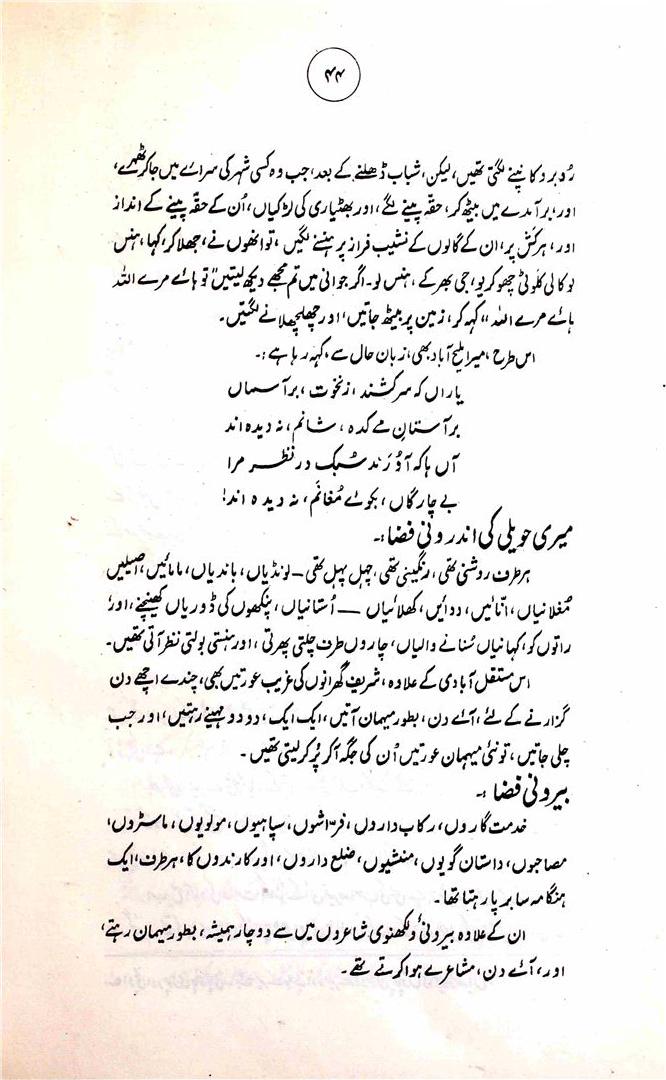 ۴۴
رُو برو کانپنے لگتی تھیں، لیکن، شباب ڈھلنے کے بعد، جب وہ کسی شہر کی سرائے میں جا کر ٹھہرے،
اور، برآمدے میں بیٹھ کر، حقّہ پینے لگے، اور بھٹیاری کی لڑکیاں، اُن کے حقّہ پینے کے انداز
اور، ہر کش پر، ان کے گالوں کے نشیب فراز پر ہنسنے لگیں، تو انھوں نے، جھلا کر، کہا، ہنس
لو کالی کلوٹی چھوکریو، جی بھر کے، ہنس لو۔ اگر جوانی میں تم مجھے دیکھ لیتیں" تو ہائے مرے اللہ
ہائے مرے اللہ،، کہہ کر، زمین پر بیٹھ جاتیں، اور چھلچھلانے لگتیں۔
اس طرح، میرا ملیح آباد بھی، زبانِ حال سے، کہہ رہا ہے:۔
یاراں کہ سرکشند، زنخوت، بر آسماں
بر آستانِ مے کدہ، شانم، نہ دیدہ اند
آں ہا کہ آؤرند سُبک در نظر مرا
بے چارگاں، بکوئے مُغانم، نہ دیدہ اند!
میری حویلی کی اندرونی فضا:۔
ہر طرف روشنی تھی، رنگینی تھی، چہل پہل تھی — لونڈیاں، باندیاں، مامائیں، اصیلیں
مُغلانیاں، انّائیں، ددائیں، کھلائیاں — اُستانیاں، پنکھوں کی ڈوریاں کھینچنے، اور،
راتوں کو، کہانیاں سُنانے والیاں، چاروں طرف چلتی پھرتی، اور ہنستی بولتی نظر آتی تھیں۔
اس مستقل آبادی کے علاوہ، شریف گھرانوں کی غریب عورتیں بھی، چندے اچھے دن
گزارنے کے لئے، آئے دن، بطورِ میہمان آتیں، ایک ایک، دو دو مہینے رہتیں، اور جب
چلی جاتیں، تو نئی میہمان عورتیں اُن کی جگہ آ کر پُر کر لیتی تھیں۔
بیرونی فضا:۔
خدمت گاروں، رکاب داروں، فرّاشوں، سپاہیوں، مولویوں، ماسٹروں،
مصاحبوں، داستان گویوں، منشیوں، ضلع داروں، اور کارندوں کا، ہر طرف، ایک
ہنگامہ سا برپا رہتا تھا۔
ان کے علاوہ بیرونی و لکھنوی شاعروں میں سے دو چار ہمیشہ، بطورِ میہمان رہتے،
اور، آئے دن، مشاعرے ہوا کرتے تھے۔